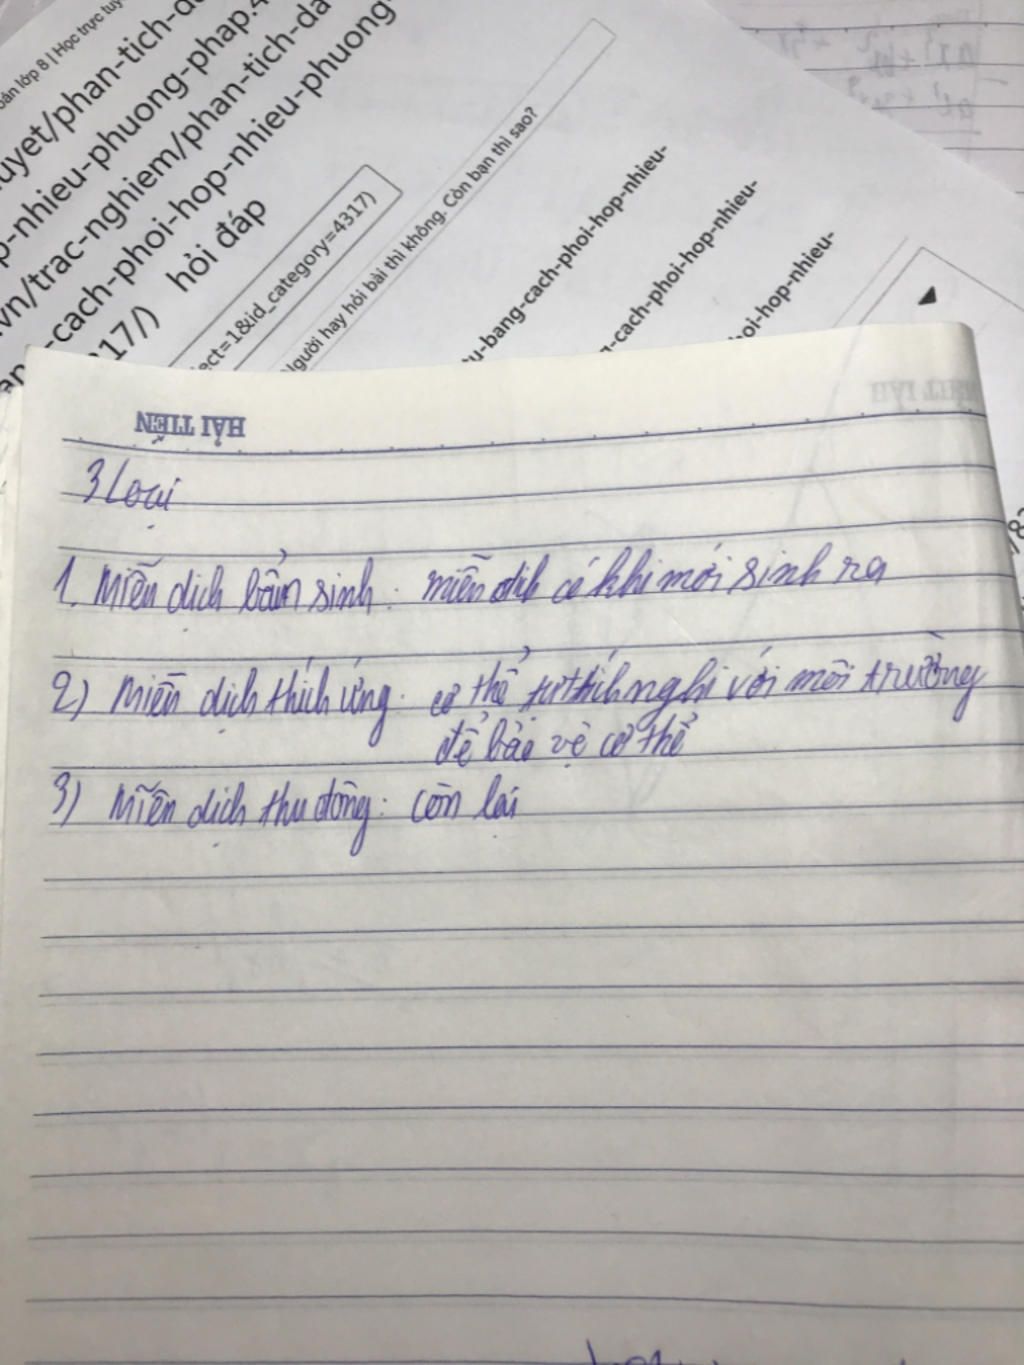 oán lớp 8 | Học trực tuy
uyet/phan-tich-d
p-nhieu-phuong-phap.
.vn/trac-nghiem/phan-tich-da
-cach-phoi-hop-nhieu-phuong-
317/)
hỏi đáp
ect=1&id_category=4317)
Người hay hỏi bài thì không. Còn bạn thì sao?
u-bang-cach-phoi-hop-nhieu-
-cach-phoi-hop-nhieu-
oi-hop-nhieu-
HẢI TIẾN
3 Loại
1. Miễn dịch bẩm sinh: miễn dịch có khi mới sinh ra
2) Miễn dịch thích ứng: cơ thể tự thích nghi với môi trường
để bảo vệ cơ thể
3) Miễn dịch thụ động: còn lại